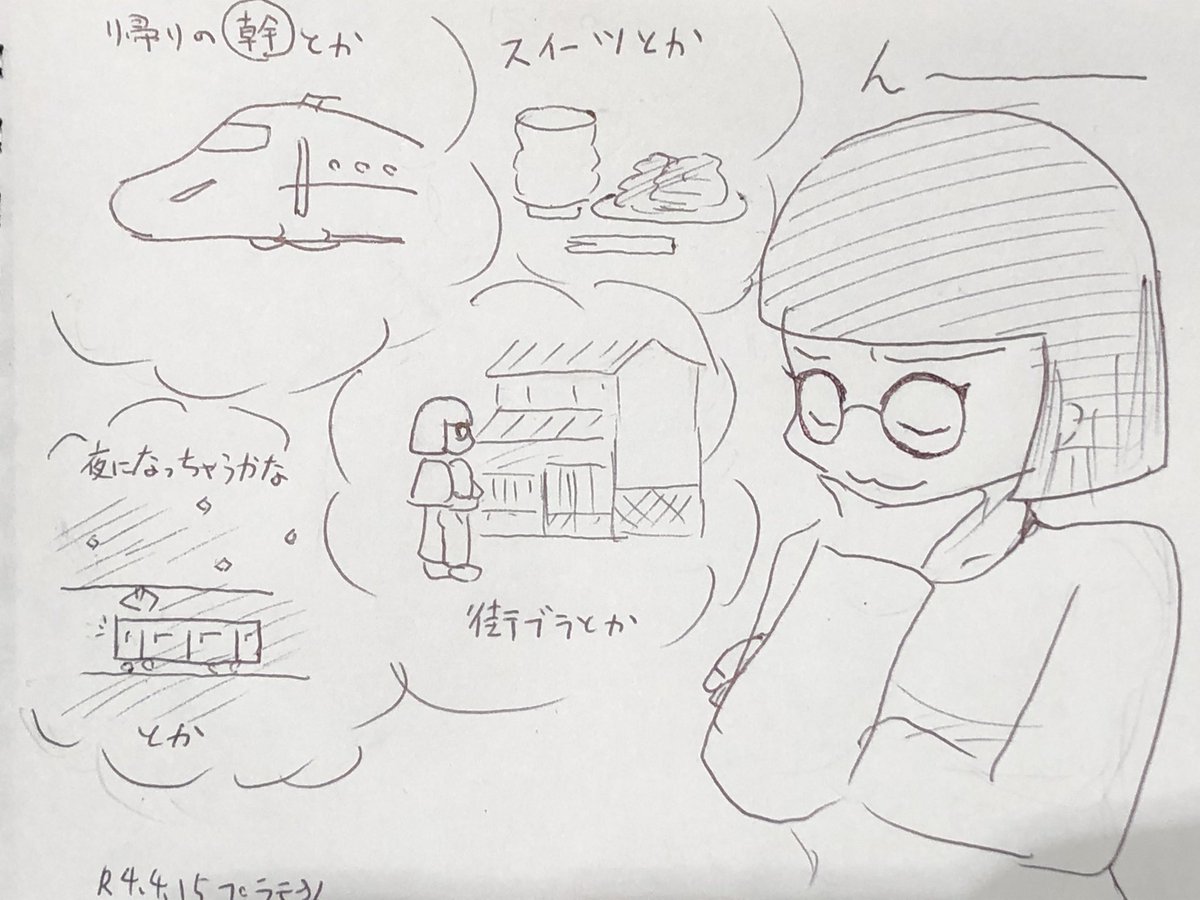 帰りの幹とか
スイーツとか
んーーー
夜になっちゃうかな
とか
街ブラとか
R4.4.15